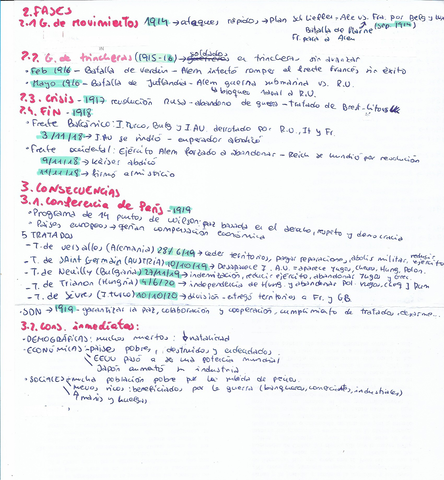 2. FASES
2.1 G. de movimientos 1914 → ataques rápidos → Plan Schlieffen, Ale vs. Fra. por Belg y
Batalla de Marne (sep. 1914)
Fr. para a Alem
2.2. G. de trincheras (1915-16) → soldados en trincheras sin avanzar
• Feb 1916 - Batalla de Verdún - Alem intentó romper el frente francés sin éxito
• Mayo 1916 - Batalla de Jutlandia - Alem guerra submarina vs. R.U.
↳ bloqueo naval a R.U.
2.3. Crisis - 1917 revolución Rusa - abandono de guerra - Tratado de Brest-Litovsk
2.4. FIN - 1918
• Frente Balcánico: I. Turco, Bulg y I. AU. derrotado por R.U., It y Fr.
3/11/18 → I. AU se rindió - emperador abdicó
• Frente occidental: Ejército Alem forzado a abandonar - Reich se hundió por revolución
9/11/18 → káiser abdicó
11/11/18 → firmó armisticio
3. CONSECUENCIAS
3.1. Conferencia de París - 1919
• Programa de 14 puntos de Wilson: paz basada en el derecho, respeto y democracia
- Países europeos → querían compensación económica
5 TRATADOS
- T. de Versalles (Alemania) 28/6/19 → ceder territorios, pagar reparaciones, abolir militar, reducir ejército
- T. de Saint Germain (AUSTRIA) 10/10/19 → Desaparece I. A.U. aparece Yugos, Checos, Hung, Polon.
- T. de Neuilly (Bulgaria) 27/11/19 → indemnización, reducir ejército, abandonar Yugos y Grec.
- T. de Trianon (Hungría) 4/6/20 → independencia de Hung. y abandonar por Yugos, Checos y Rum
- T. de Sèvres (I. Turco) 10/10/20 → división - entregó territorios a Fr. y GB.
• SDN → 1919 - garantizar la paz, colaboración y cooperación, cumplimiento de tratados, desarme...
3.2. Cons. inmediatas:
• DEMOGRÁFICAS: muchos muertos: ↓ natalidad
• ECONÓMICAS → países pobres, destruidos y endeudados
↳ EEUU pasó a ser una potencia mundial
Japón aumentó su industria
• SOCIALES → mucha población pobre por la subida de precios.
↳ nuevos ricos: beneficiados por la guerra (banqueros, comerciantes, industriales)